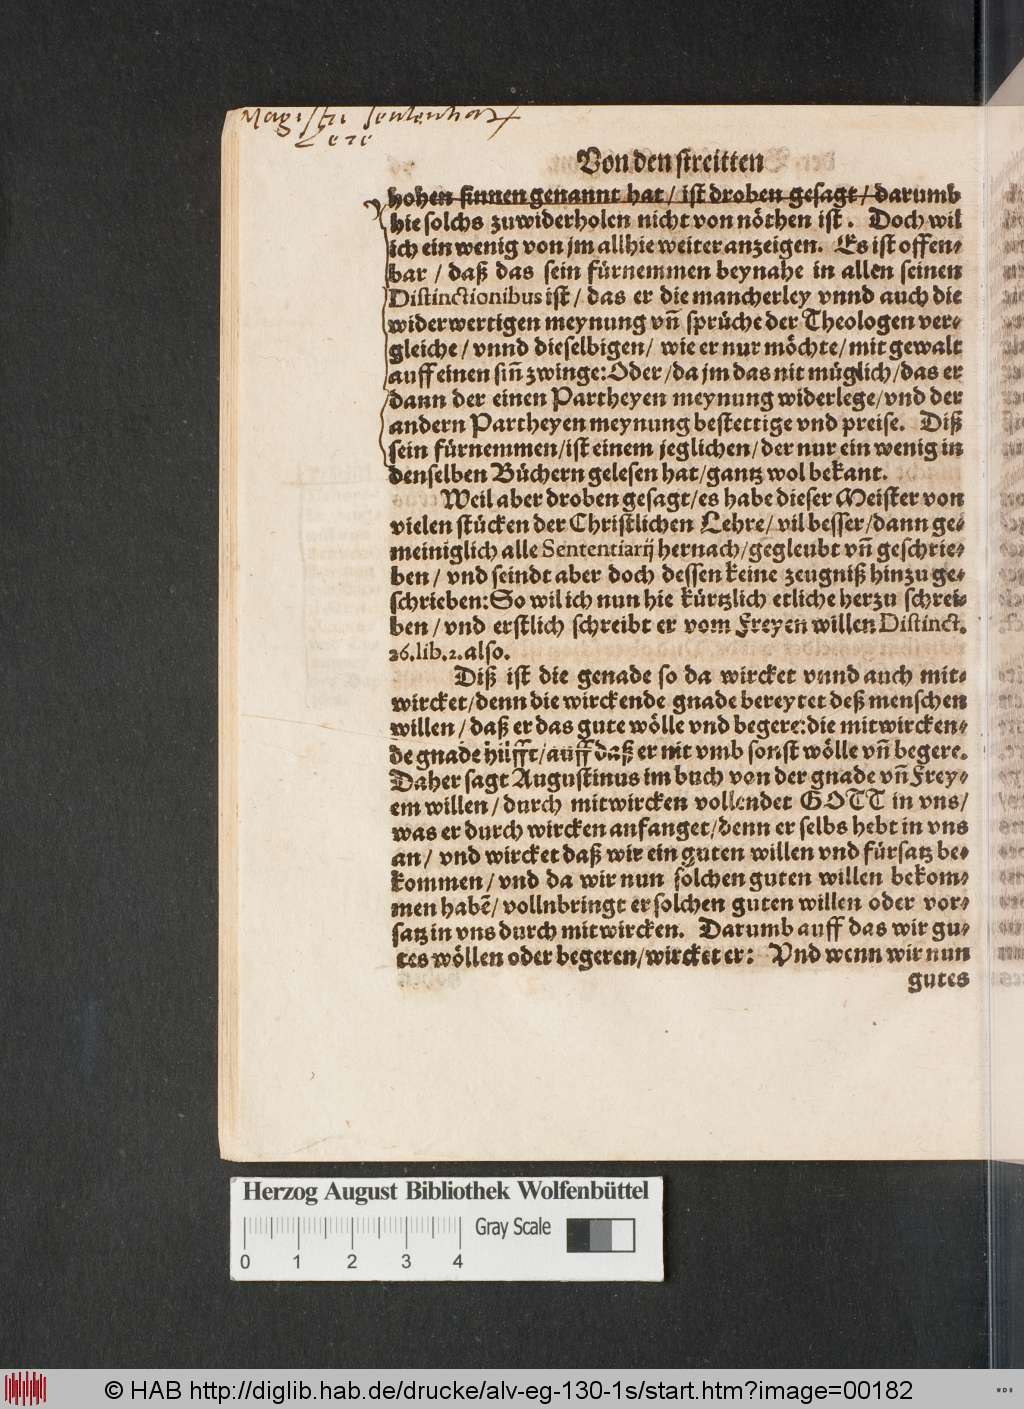 Magistri sententiarū
Lere
Von den streitten
hohen sinnen genannt hat / ist droben gesagt / darumb
hie solchs zuwiderholen nicht von nöthen ist. Doch wil
ich ein wenig von jm allhie weiter anzeigen. Es ist offen⸗
bar / daß das sein fürnemmen beynahe in allen seinen
Distinctionibus ist / das er die mancherley vnnd auch die
widerwertigen meynung vñ sprüche der Theologen ver⸗
gleiche / vnnd dieselbigen / wie er nur möchte / mit gewalt
auff einen siñ zwinge: Oder / da jm das nit müglich / das er
dann der einen Partheyen meynung widerlege / vnd der
andern Partheyen meynung bestettige vnd preise. Diß
sein fürnemmen / ist einem jeglichen / der nur ein wenig in
denselben Büchern gelesen hat / gantz wol bekant.
Weil aber droben gesagt / es habe dieser Meister von
vielen stücken der Christlichen Lehre / vil besser / dann ge⸗
meiniglich alle Sententiarij hernach / gegleubt vñ geschrie⸗
ben / vnd seindt aber doch dessen keine zeugniß hinzu ge⸗
schrieben: So wil ich nun hie kürtzlich etliche herzu schrei⸗
ben / vnd erstlich schreibt er vom Freyen willen Distinct.
26. lib. 2. also.
Diß ist die genade so da wircket vnnd auch mit⸗
wircket / denn die wirckende gnade bereytet deß menschen
willen / daß er das gute wölle vnd begere: die mitwircken⸗
de gnade hilfft / auff daß er nit vmb sonst wölle vñ begere.
Daher sagt Augustinus im buch von der gnade vñ Frey⸗
em willen / durch mitwircken vollendet GOTT in vns /
was er durch wircken anfanget / denn er selbs hebt in vns
an / vnd wircket daß wir ein guten willen vnd fürsatz be⸗
kommen / vnd da wir nun solchen guten willen bekom⸗
men habẽ / vollnbringt er solchen guten willen oder vor⸗
satz in vns durch mitwircken. Darumb auff das wir gu⸗
tes wöllen oder begeren / wircket er: Vnd wenn wir nun
gutes
Herzog August Bibliothek Wolfenbüttel
Gray Scale
0 1 2 3 4
© HAB http://diglib.hab.de/drucke/alv-eg-130-1s/start.htm?image=00182